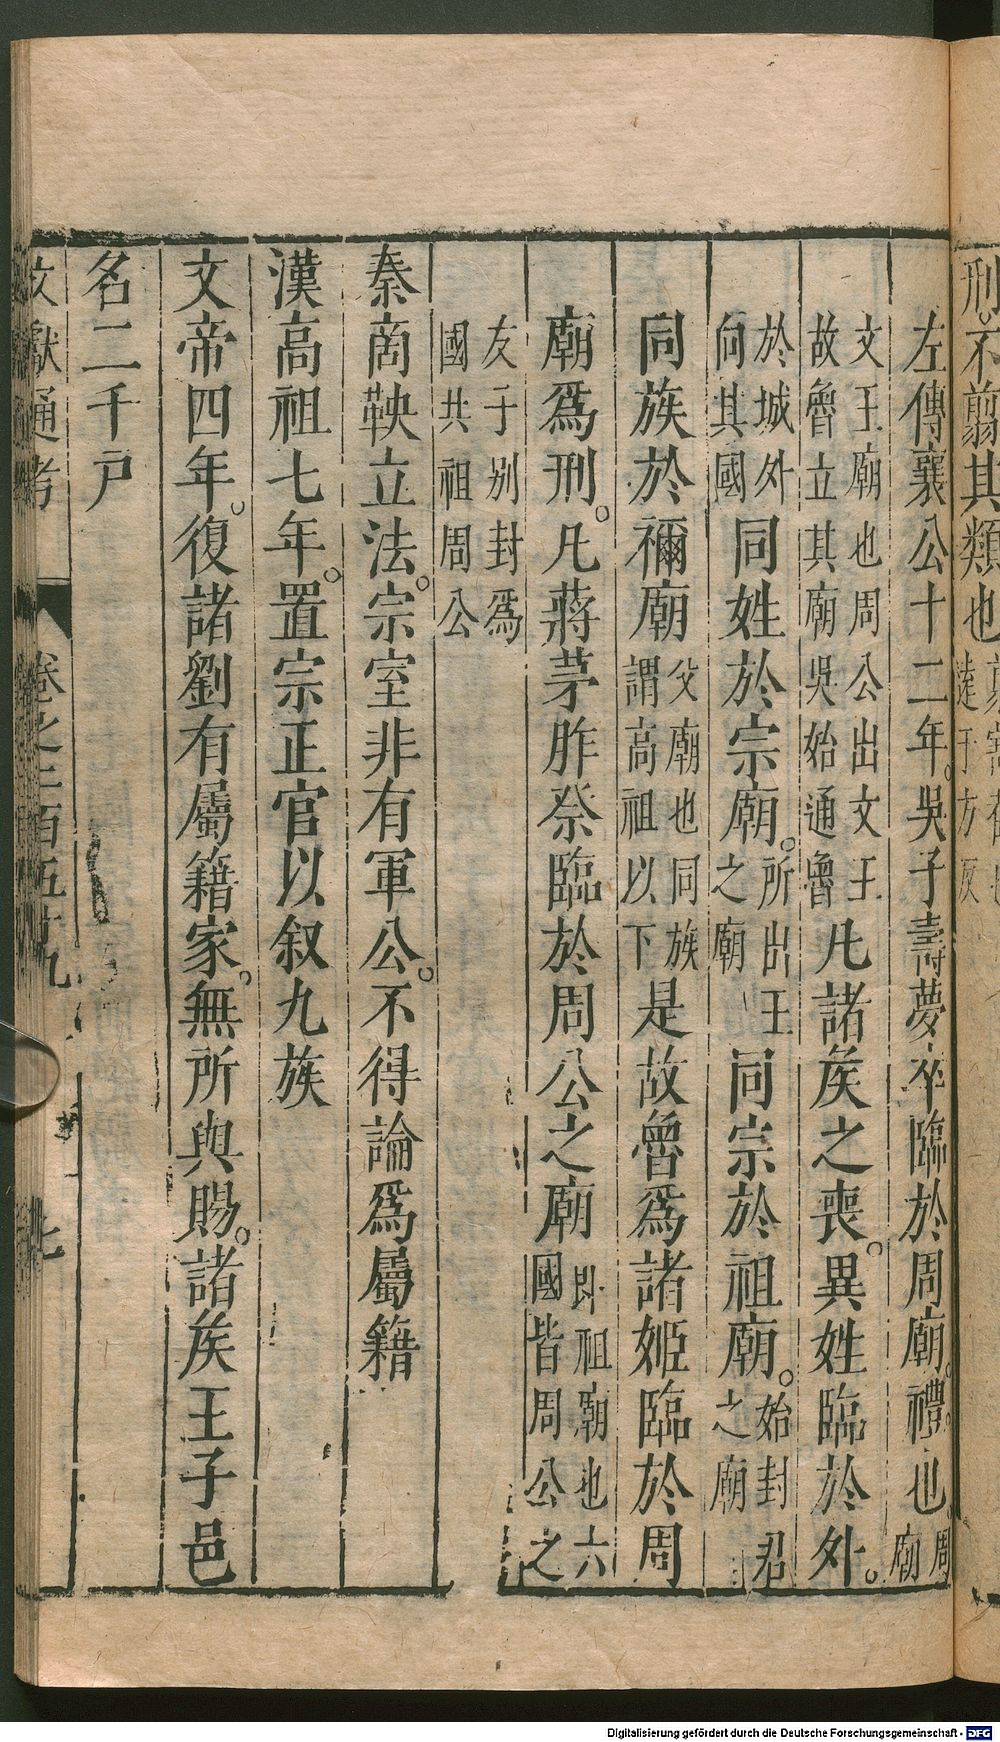 刑不翦其類也
左傳襄公十二年。吳子壽夢卒臨於周廟。禮也。周廟
文王廟也周公出文王故魯立其廟吳始通魯凡諸矦之喪。異姓臨於外。
於城外向其國同姓於宗廟。所出王之廟同宗於祖廟。始封君之廟
同族於禰廟父廟也同族謂高祖以下是故魯爲諸姬臨於周
廟爲刑。凡蔣茅胙祭臨於周公之廟卽祖廟也六國皆周公之
友于別封爲國共祖周公
秦商鞅立法。宗室非有軍公。不得論爲屬籍
漢高祖七年。置宗正官以叙九族
文帝四年。復諸劉有屬籍家。無所與賜。諸矦王子邑
名二千戸
文獻通考 卷之二百五十九 七
Digitalisierung gefördert durch die Deutsche Forschungsgemeinschaft - DFG